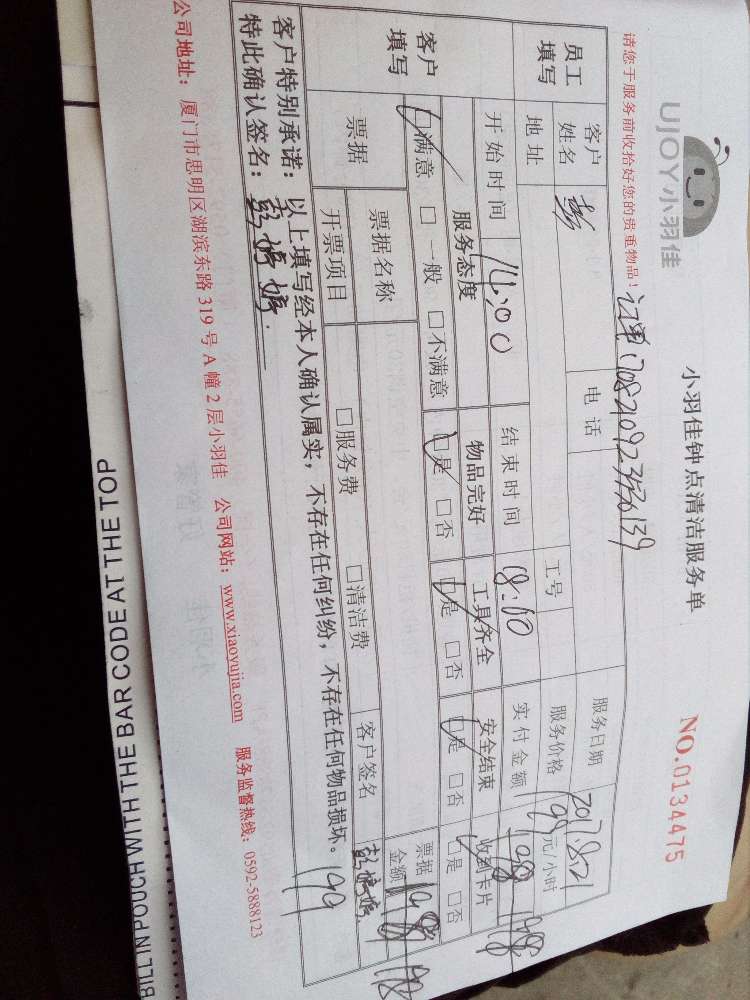 UJOY小羽佳
小羽佳钟点清洁服务单
NO.0134475
请您于服务前收拾好您的贵重物品！
客户姓名 彭 电话 服务日期 2017.8.21
员工填写 地址 工号 服务价格 元/小时
开始时间 14:00 结束时间 18:00 实付金额 198 198
客户填写 服务态度 物品完好 工具齐全 安全结束 收到卡片
□满意 □一般 □不满意 □是 □否 □是 □否 □是 □否 □是 □否
票据 票据名称 票据金额 198 198
开票项目 □服务费 □清洁费 客户签名
客户特别承诺：以上填写经本人确认属实，不存在任何纠纷，不存在任何物品损坏。 199
特此确认签名：
公司地址：厦门市思明区湖滨东路 319 号 A 幢 2 层小羽佳 公司网站：www.xiaoyujia.com 服务监督热线：0592-5888123
BILL IN POUCH WITH THE BAR CODE AT THE TOP